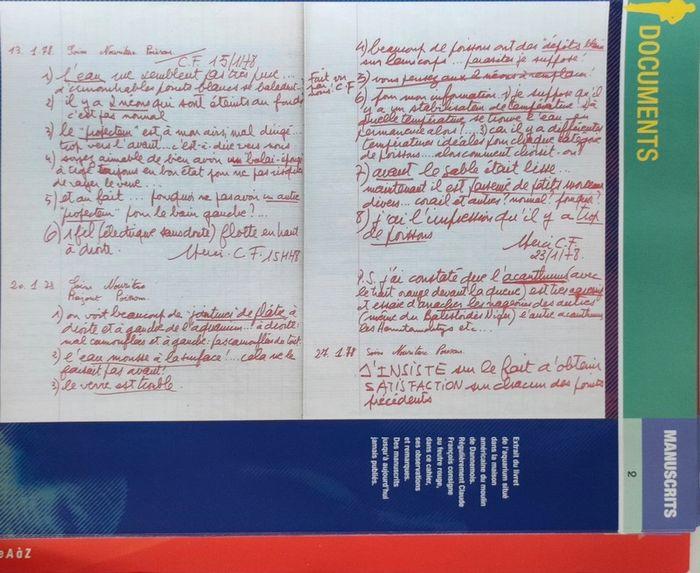 13.1.78 Soins Nourriture Poissons.
C.F 15/1/78
1) l'eau me semblent pas très pure...
d'innombrables points blancs se baladent...?
2) il y a 2 néons qui sont éteints au fond
c'est pas normal
3) le "projecteur" est à mon avis mal dirigé...
trop vers l'avant... c'est-à-dire vers nous
4) soyez aimable de bien avoir un balai-éponge
à toujours en bon état pour ne pas risquer
de rayer le verre...
5) et au fait... pourquoi ne pas avoir un autre
"projecteur" pour le bain gauche?...
6) 1 fil (électrique sans doute) flotte en haut
à droite. Merci C.F. 15/1/78
20.1.78 Soins Nourriture
Poissons.
1) on voit beaucoup de jointures de plâtre à
droite et à gauche de l'aquarium...! à droite:
mal camouflées et à gauche: pas camouflées du tout.
2) l'eau mousse à la surface!... cela ne le
faisait pas avant!
3) le verre est trouble.
4) beaucoup de poissons ont des "dépôts blancs"
sur leurs corps... parasites je suppose!
Fait vu
C.F
5) vous pensez aux 2 néons à remplacer!
6) pour mon information: 1) je suppose qu'il
y a un stabilisateur de température? 2) à
quelle température se trouve l'eau en
permanence alors!... 3) car il y a différentes
températures idéales pour chaque catégorie
de poissons... alors comment choisit-on!
7) avant le sable était lisse...
maintenant il est parsemé de petits morceaux
divers... corail et autres! normal? pourquoi?
8) j'ai l'impression qu'il y a trop
de poissons
Merci C.F.
23/1/78
P.S. j'ai constaté que l'acanthurus (avec
le trait orange devant la queue) est très agressif
et essaie d'arracher les nageoires des autres
(même du Balistoïdes Niger) l'autre acanthurus
les Hemitaurichtys etc...
27.1.78 Soins Nourriture Poissons.
J'INSISTE sur le fait d'obtenir
SATISFACTION sur chacun des points
précédents
DOCUMENTS
MANUSCRITS
2
Extrait du livret
de l'aquarium situé
dans la maison
américaine du moulin
de Dannemois.
Régulièrement Claude
François consigne
au feutre rouge,
dans ce cahier,
ses observations
et remarques.
Des manuscrits
jusqu'à aujourd'hui
jamais publiés.
e A à Z